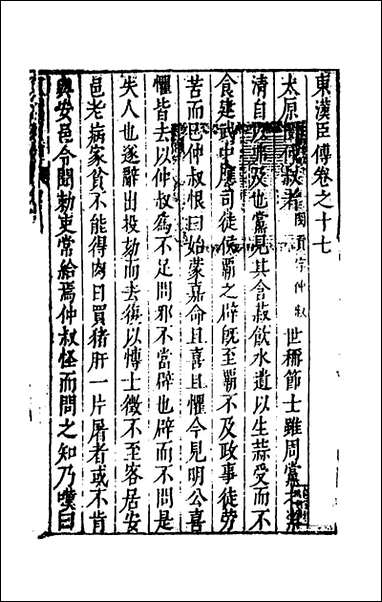 東漢臣傳卷之十七
太原閔仲叔者閔貢字仲叔世稱節士雖周黨之
清自以弗及也黨見其含菽飲水遺以生蒜受而不
食建武中應司徒侯霸之辟既至霸不及政事徒勞
苦而已仲叔恨曰始蒙嘉命且喜且懼今見明公喜
懼皆去以仲叔為不足問邪不當辟也辟而不問是
失人也遂辭出投劾而去復以博士徵不至客居安
邑老病家貧不能得肉日買猪肝一片屠者或不肯
與安邑令聞勑吏常給焉仲叔怪而問之知乃嘆曰